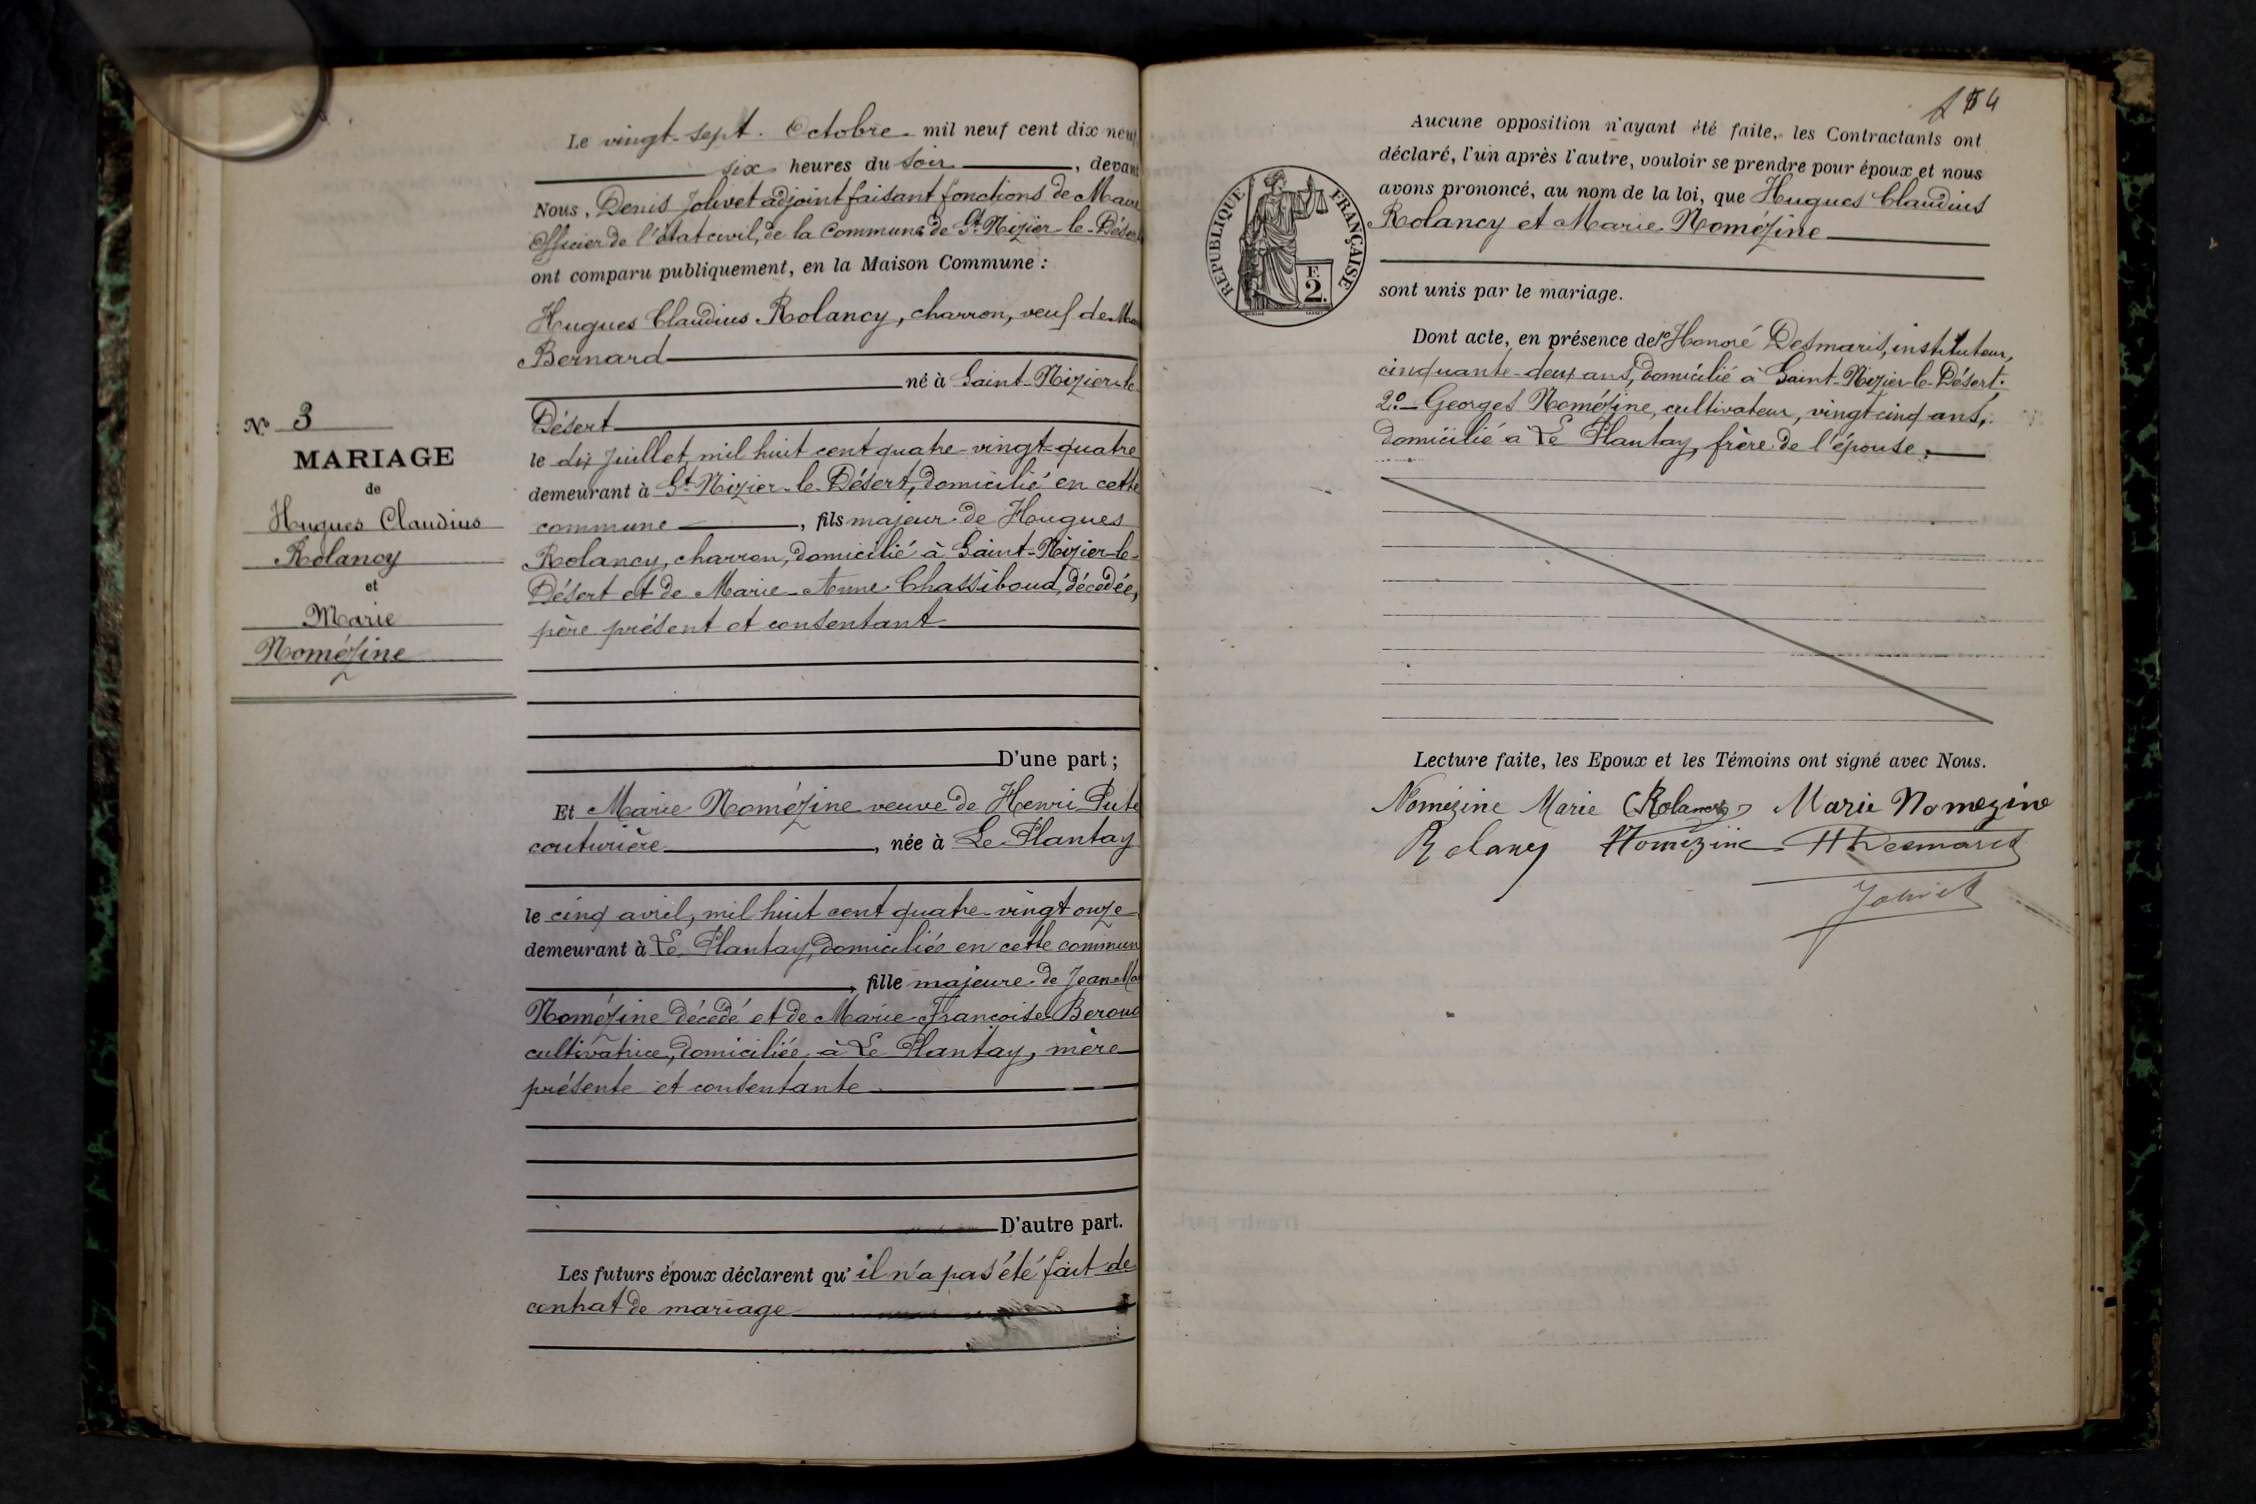 Le vingt-sept Octobre mil neuf cent dix-neuf
six heures du soir, devant
Nous, Denis Jolivet adjoint faisant fonctions de Maire
Officier de l'état civil, de la Commune de St Nizier-le-Désert
ont comparu publiquement, en la Maison Commune :
Hugues Claudius Rolancy, charron, veuf de
Bernard
né à Saint-Nizier-le-
Désert
le dix juillet mil huit cent quatre-vingt-quatre
demeurant à St Nizier-le-Désert, domicilié en cette
commune, fils majeur de Hugues
Rolancy, charron, domicilié à Saint-Nizier-le-
Désert et de Marie-Anne Chassiboud, décédée,
père présent et consentant
D'une part ;
N° 3
MARIAGE
de
Hugues Claudius
Rolancy
et
Marie
Nomézine
Et Marie Nomézine veuve de Henri
couturière, née à Le Plantay
le cinq avril, mil huit cent quatre-vingt onze
demeurant à Le Plantay, domiciliée en cette commun
fille majeure de Jean
Nomézine décédé et de Marie-Françoise Beroud
cultivatrice, domiciliée à Le Plantay, mère
présente et consentante
D'autre part.
Les futurs époux déclarent qu'il n'a pas été fait de
contrat de mariage
154
Aucune opposition n'ayant été faite, les Contractants ont
déclaré, l'un après l'autre, vouloir se prendre pour époux et nous
avons prononcé, au nom de la loi, que Hugues Claudius
Rolancy et Marie Nomézine
sont unis par le mariage.
REPUBLIQUE FRANÇAISE
F.
2.
Dont acte, en présence de 1° Honoré Desmaris, instituteur,
cinquante-deux ans, domicilié à Saint-Nizier-le-Désert.
2°- Georges Nomézine, cultivateur, vingt-cinq ans,
domicilié à Le Plantay, frère de l'épouse.
Lecture faite, les Epoux et les Témoins ont signé avec Nous.
Nomézine Marie Rolancy Marie Nomezine
Rolancy Nomézine H Desmaris
Jolivet